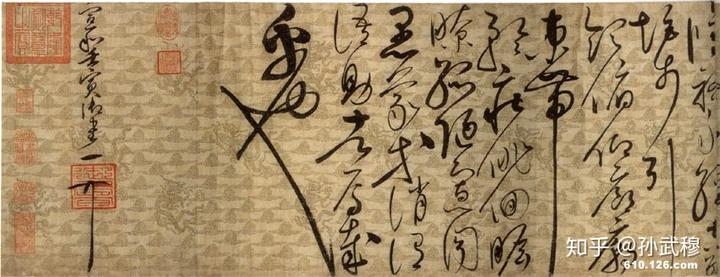 矩步引
領俯仰廊廟
束帶
矜莊徘徊瞻
眺孤陋寡聞
愚蒙等誚謂
語助者焉哉
乎也
宣和壬寅御書
知乎 @孙武穆
610.126.com